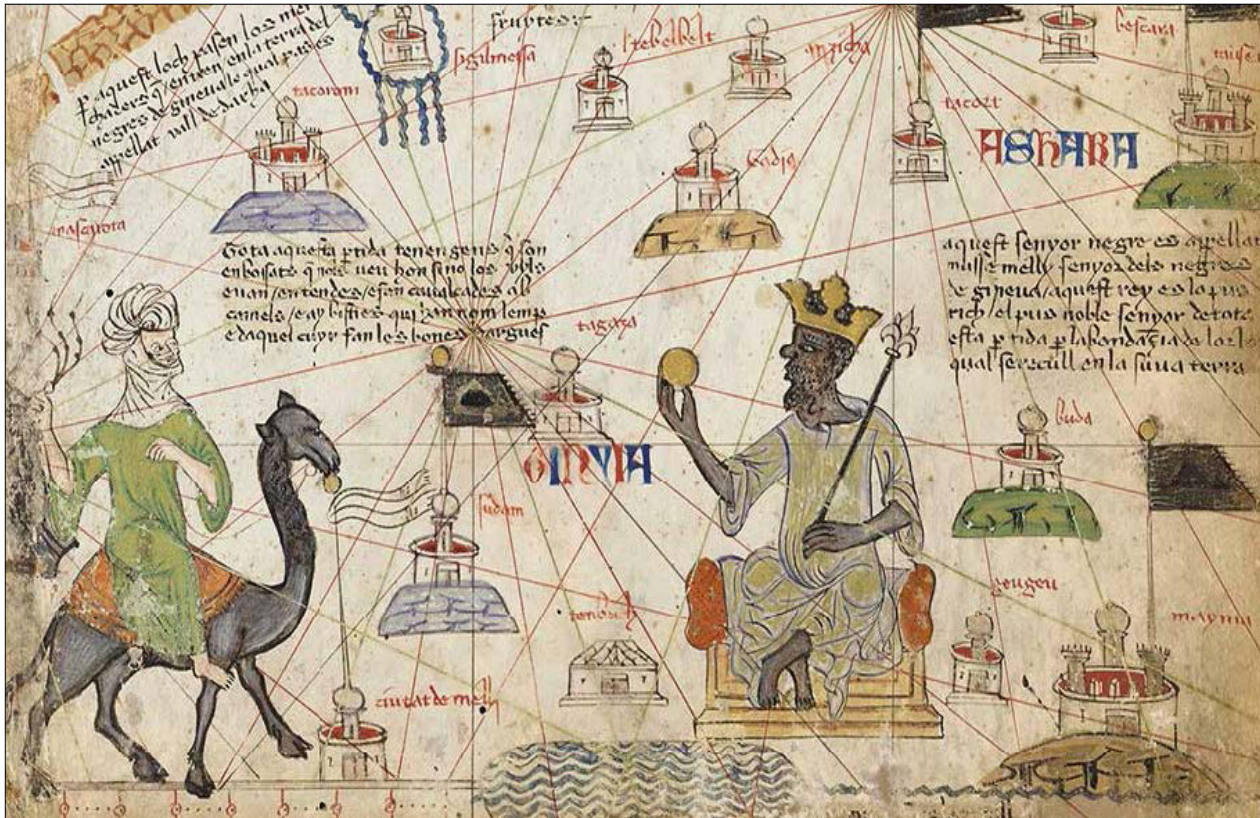 fruytes
p aquest loch pasen los mer
chaders q̄ entren en la terra del
negres de gineua lo qual pas es
apellat vall de darha
sigilmessa
tebelbelt
anzicha
bescara
tacort
tacoroni
ASHARA
Tota aquesta ptida tenen gens q̄ son
enbossats q̄ nols veu hon sino los uyls
e uan en tendes e fan caualcades ab
camels e ay bisties qui han nom lemp
e daquel cuyr fan les bones dargues
aquest senyor negre es appellat
musse melly senyor dels negres
de gineua aquest rey es lo pus
rich el pus noble senyor de tota
esta ptida p labondançia de lor
qual se recull en la suua terra
tagaza
buda
GINYIA
sudam
tenbuch
geugeu
mayma
ciutat de melly